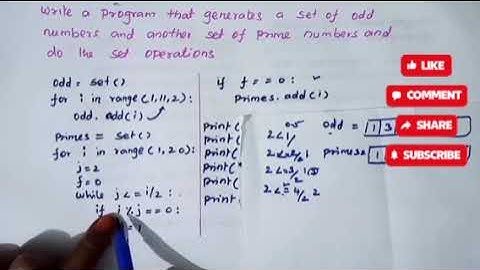 Write a program that generates a set of odd
numbers and another set of prime numbers and
do the set operations
odd = set()
for i in range(1,11,2):
odd.add(i)
primes = set()
for i in range(1,20):
j=2
f=0
while j<=i/2:
if i%j==0:
=1
if f==0:
primes.add(i)
print(
print(
print(
print("
print(
print(
0.5
2<1/
2<=4/2 2
odd = 1 3
primes=
LIKE
COMMENT
SHARE
SUBSCRIBE